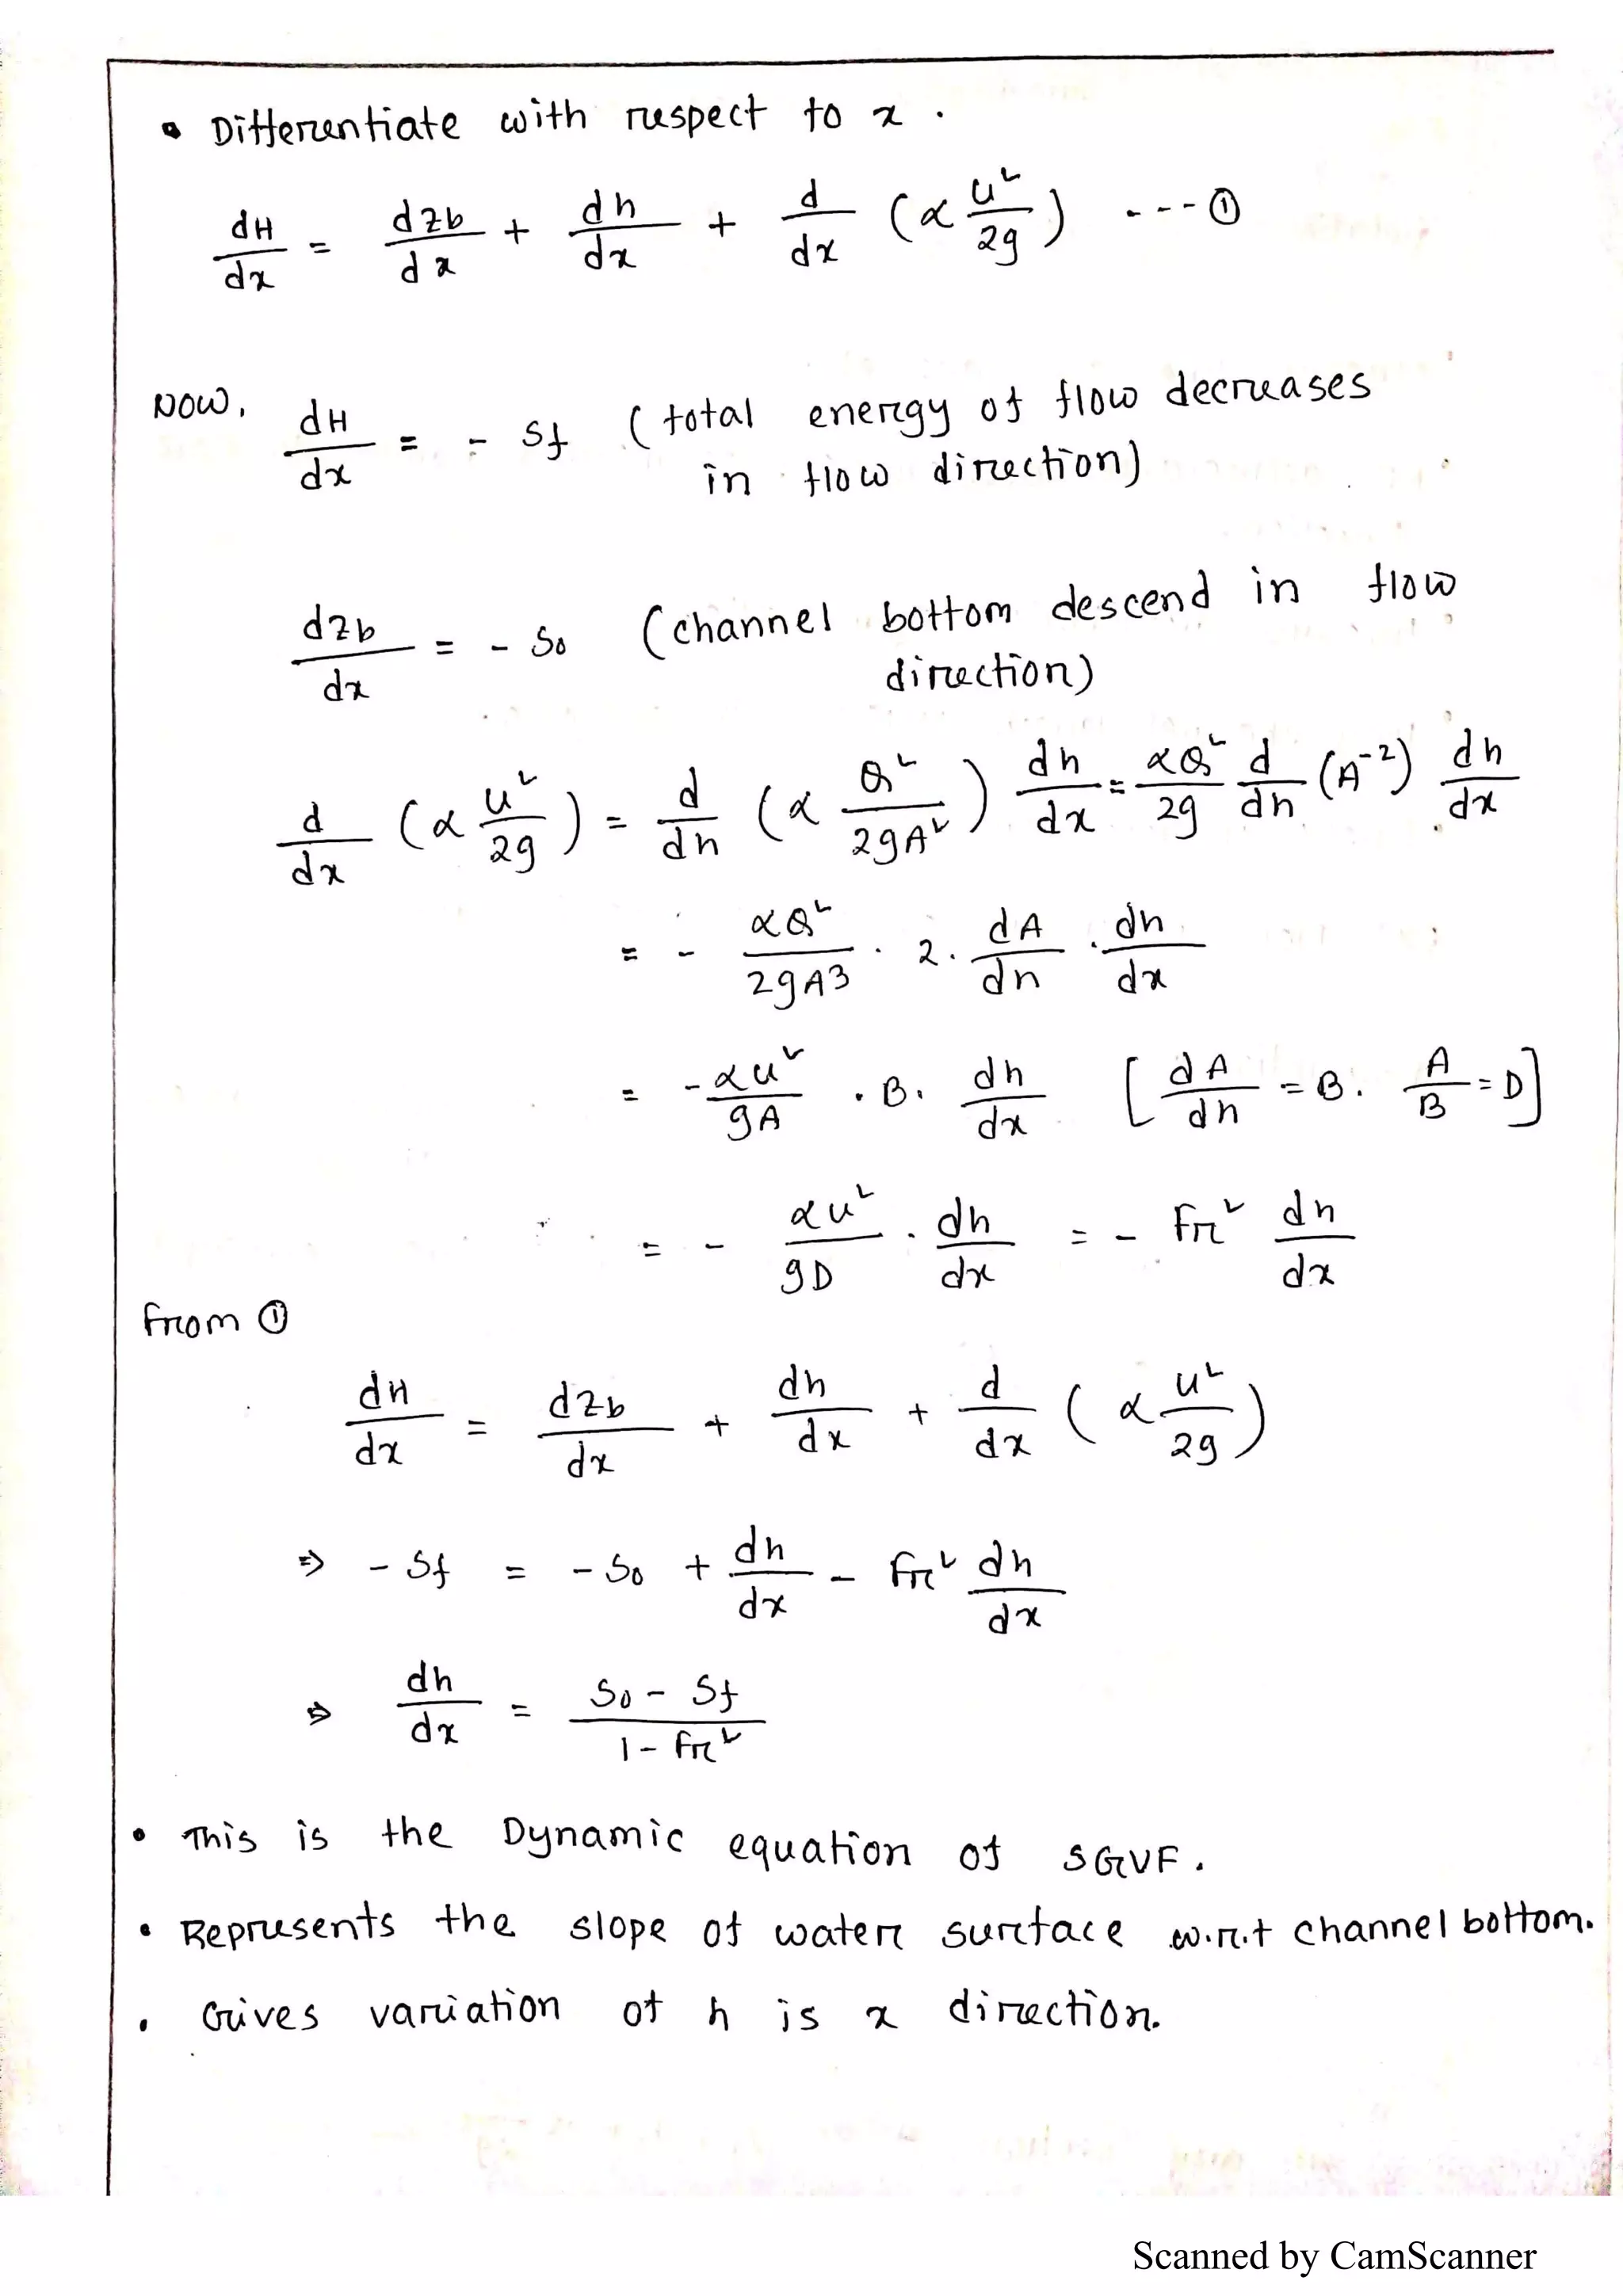 • Differentiate with respect to x.
dH/dx = dzb/dx + dh/dx + d/dx (α u²/2g) ---①
Now, dH/dx = - Sf (total energy of flow decreases
in flow direction)
dzb/dx = - S₀ (channel bottom descend in flow
direction)
d/dx (α u²/2g) = d/dh (α Q²/2gA²) dh/dx = αQ²/2g d/dh (A⁻²) dh/dx
= - αQ²/2gA3 · 2 · dA/dh · dh/dx
= -αu²/gA · B · dh/dx [dA/dh = B. A/B = D]
= - αu²/gD · dh/dx = - Fr² dh/dx
From ①
dH/dx = dzb/dx + dh/dx + d/dx (α u²/2g)
⇒ - Sf = - S₀ + dh/dx - Fr² dh/dx
⇒ dh/dx = S₀ - Sf / 1 - Fr²
• This is the Dynamic equation of SGVF.
• Represents the slope of water surface w.r.t channel bottom.
• Gives variation of h is x direction.
Scanned by CamScanner